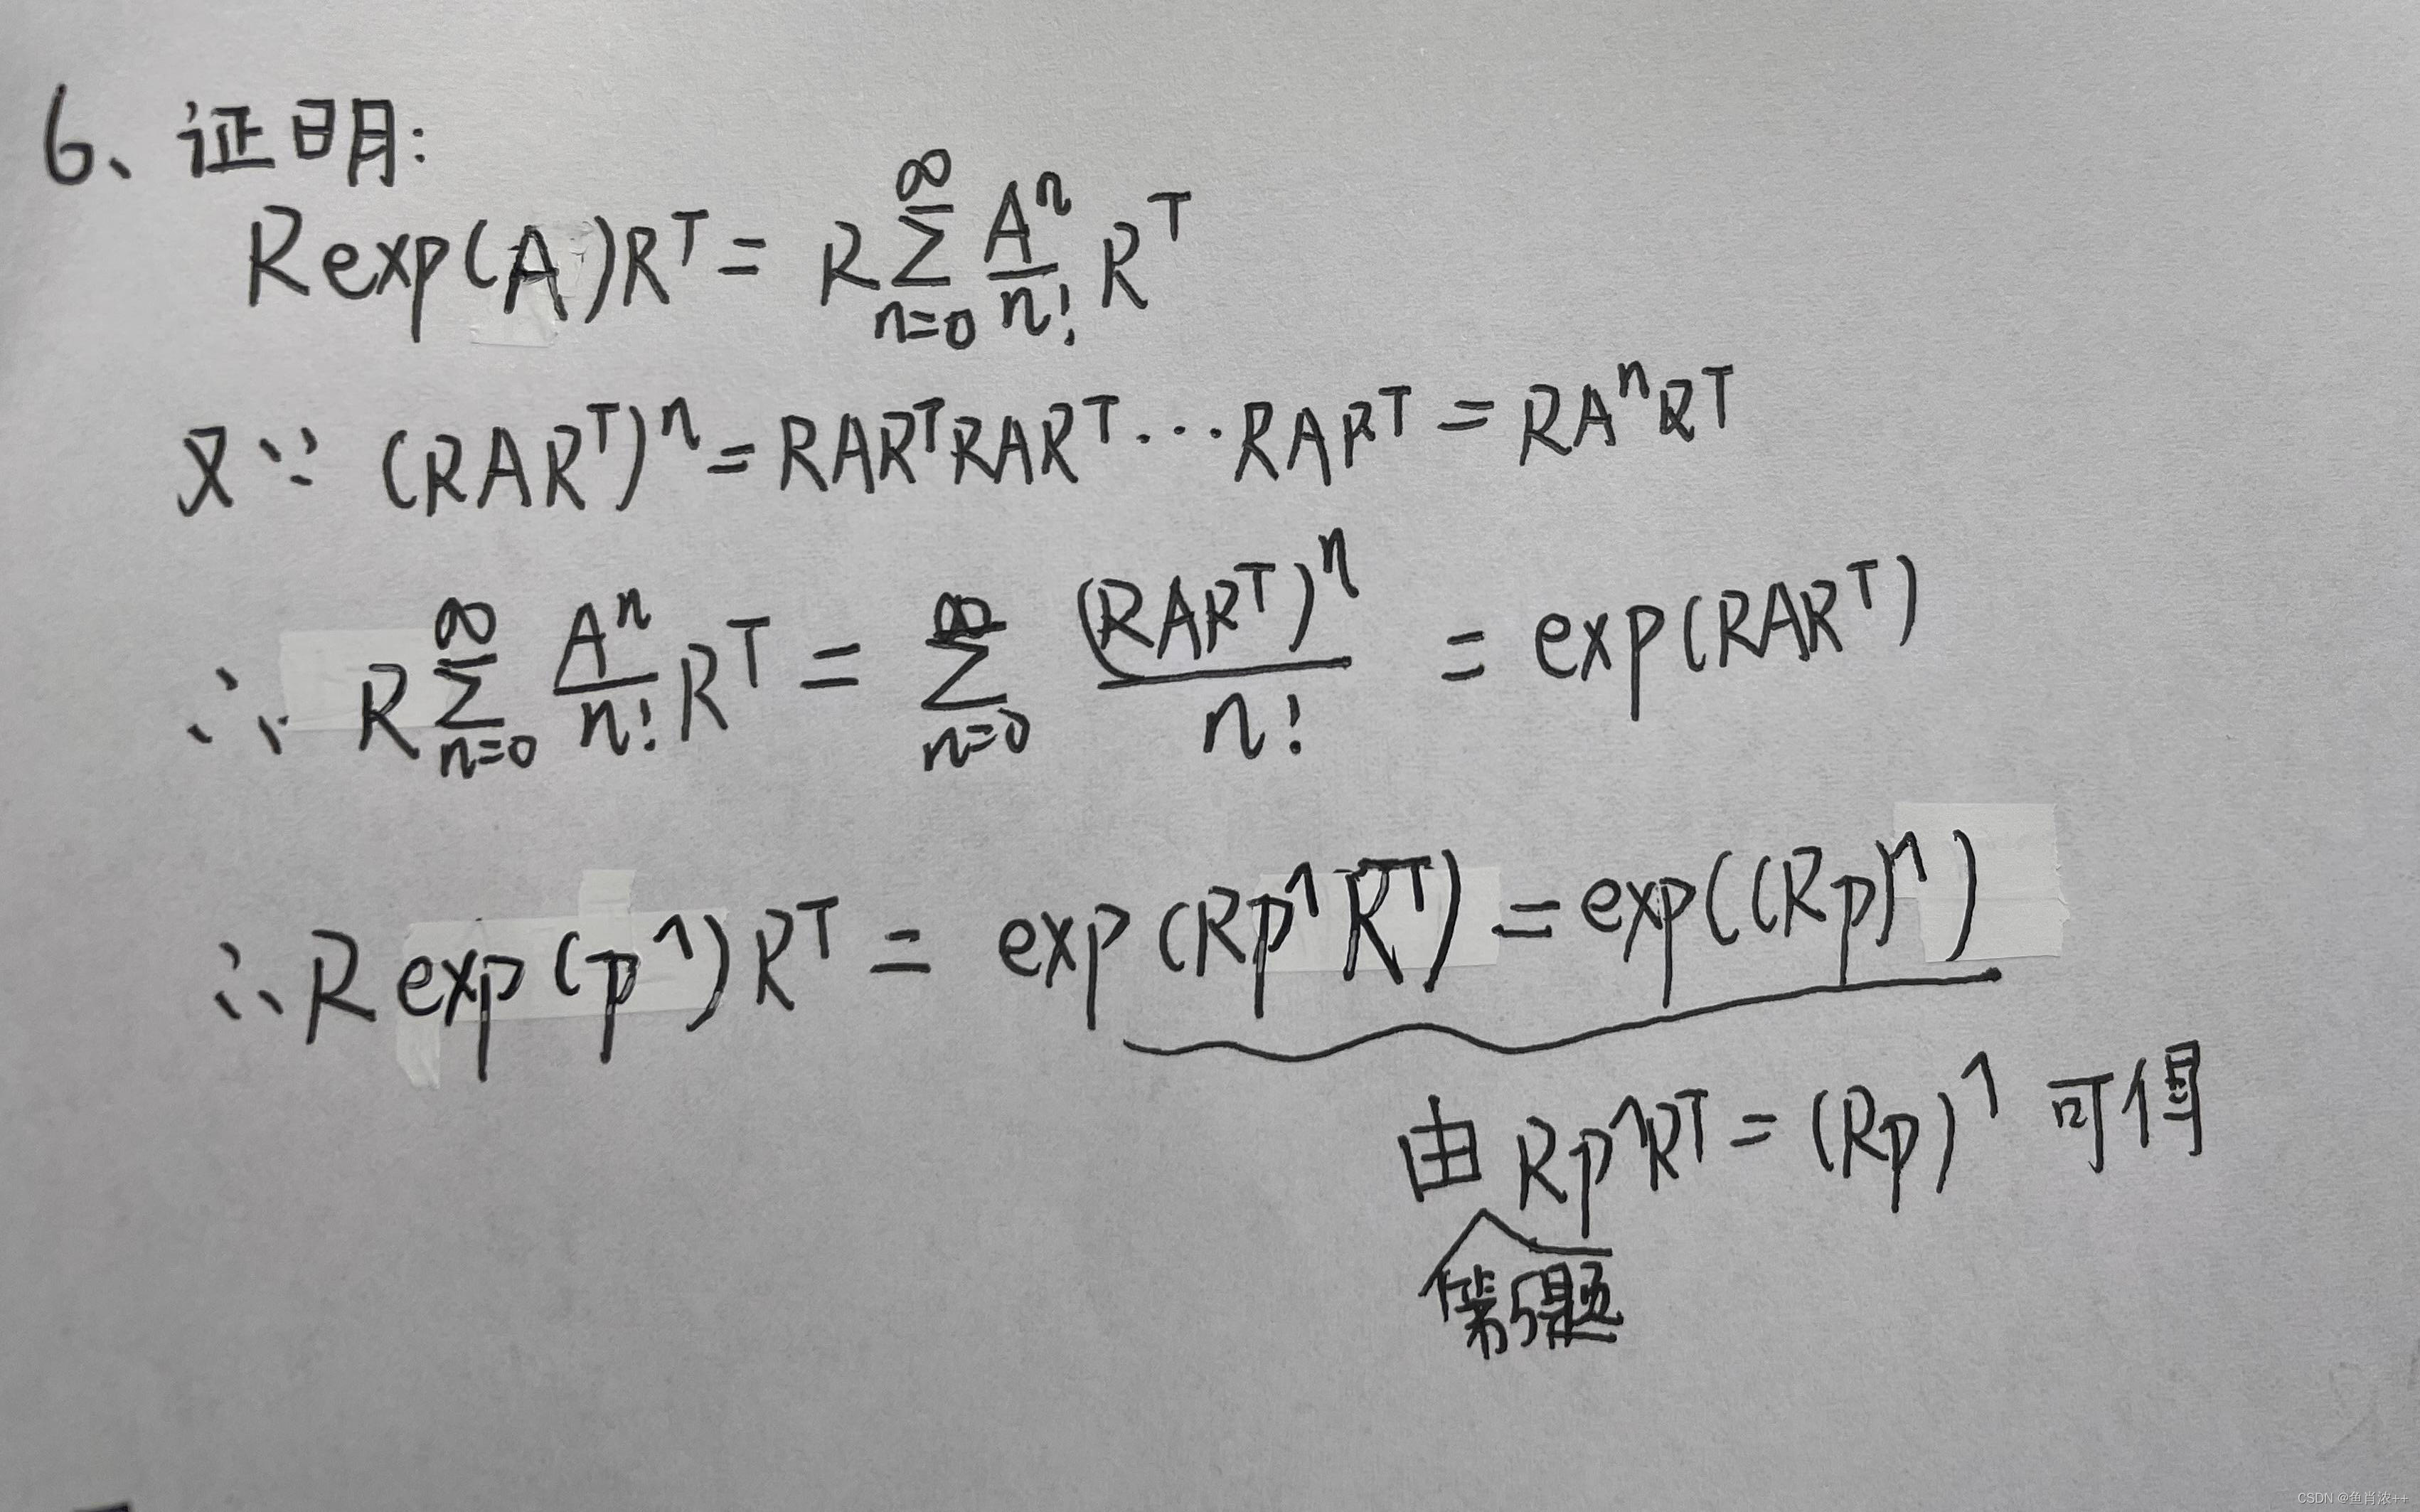 6、证明:
R exp(A)R^T = R \sum_{n=0}^{∞} \frac{A^n}{n!} R^T
又∵ (RAR^T)^n = RAR^TRAR^T···RAR^T = RA^nR^T
∴ R \sum_{n=0}^{∞} \frac{A^n}{n!} R^T = \sum_{n=0}^{∞} \frac{(RAR^T)^n}{n!} = exp(RAR^T)
∴ R exp(p^∧)R^T = exp(Rp^∧R^T) = exp((Rp)^∧)
由 Rp^∧R^T = (Rp)^∧ 可得
第5题
CSDN @鱼肖浓++